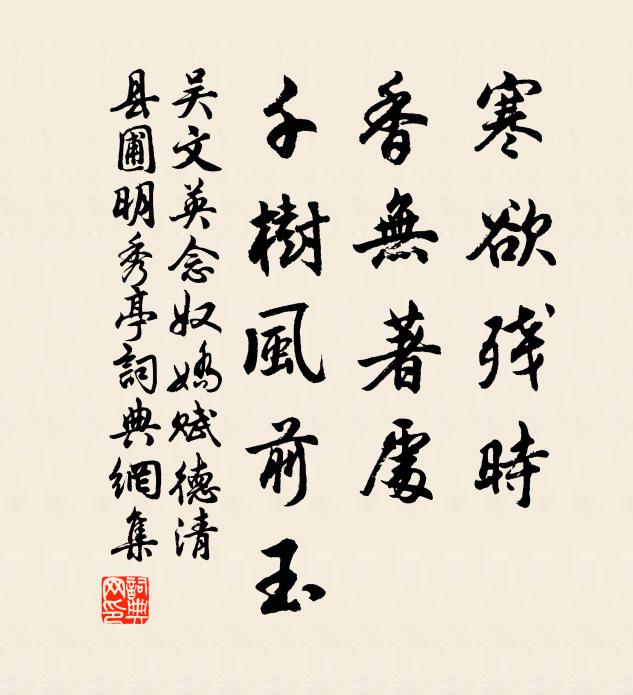 寒欲残時
香無著處
千樹風前玉
吴文英念奴嬌賦德清
县圃明秀亭詞典網集
詞典网印